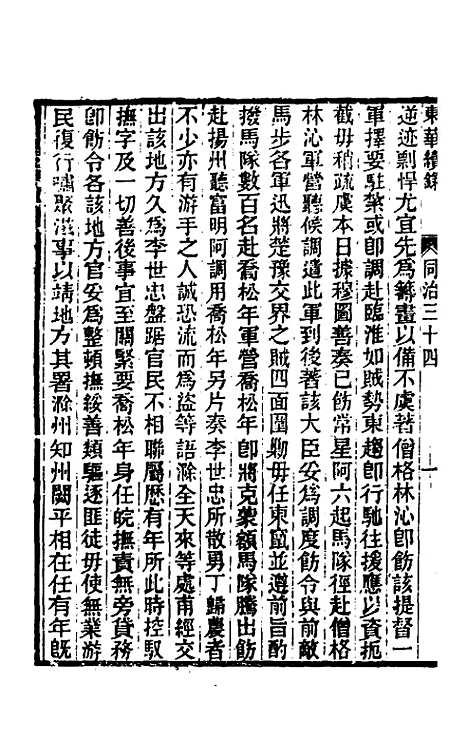 東華續錄 同治三十四 一
逆迹剽悍尤宜先爲籌畫以備不虞著僧格林沁卽飭該提督一
軍擇要駐紮或卽調赴臨淮如賊勢東趨卽行馳往援應以資扼
截毋稍疏虞本日據穆圖善奏已飭常星阿六起馬隊徑赴僧格
林沁軍營聽候調遣此軍到後著該大臣妥爲調度飭令與前敵
馬步各軍迅將楚豫交界之賊四面圍勦毋任東竄並遵前旨酌
撥馬隊數百名赴喬松年軍營喬松年卽將克蒙額馬隊騰出飭
赴揚州聽富明阿調用喬松年另片奏李世忠所散男丁歸農者
不少亦有游手之人誠恐流而爲盜等語滁全天來等處甫經交
出該地方久爲李世忠盤踞官民不相聯屬歷有年所此時控馭
撫字及一切善後事宜至關緊要喬松年身任皖撫責無旁貸務
卽飭令各該地方官妥爲整頓撫綏善類驅逐匪徒毋使無業游
民復行嘯聚滋事以靖地方其署滁州知州關平相在任有年旣